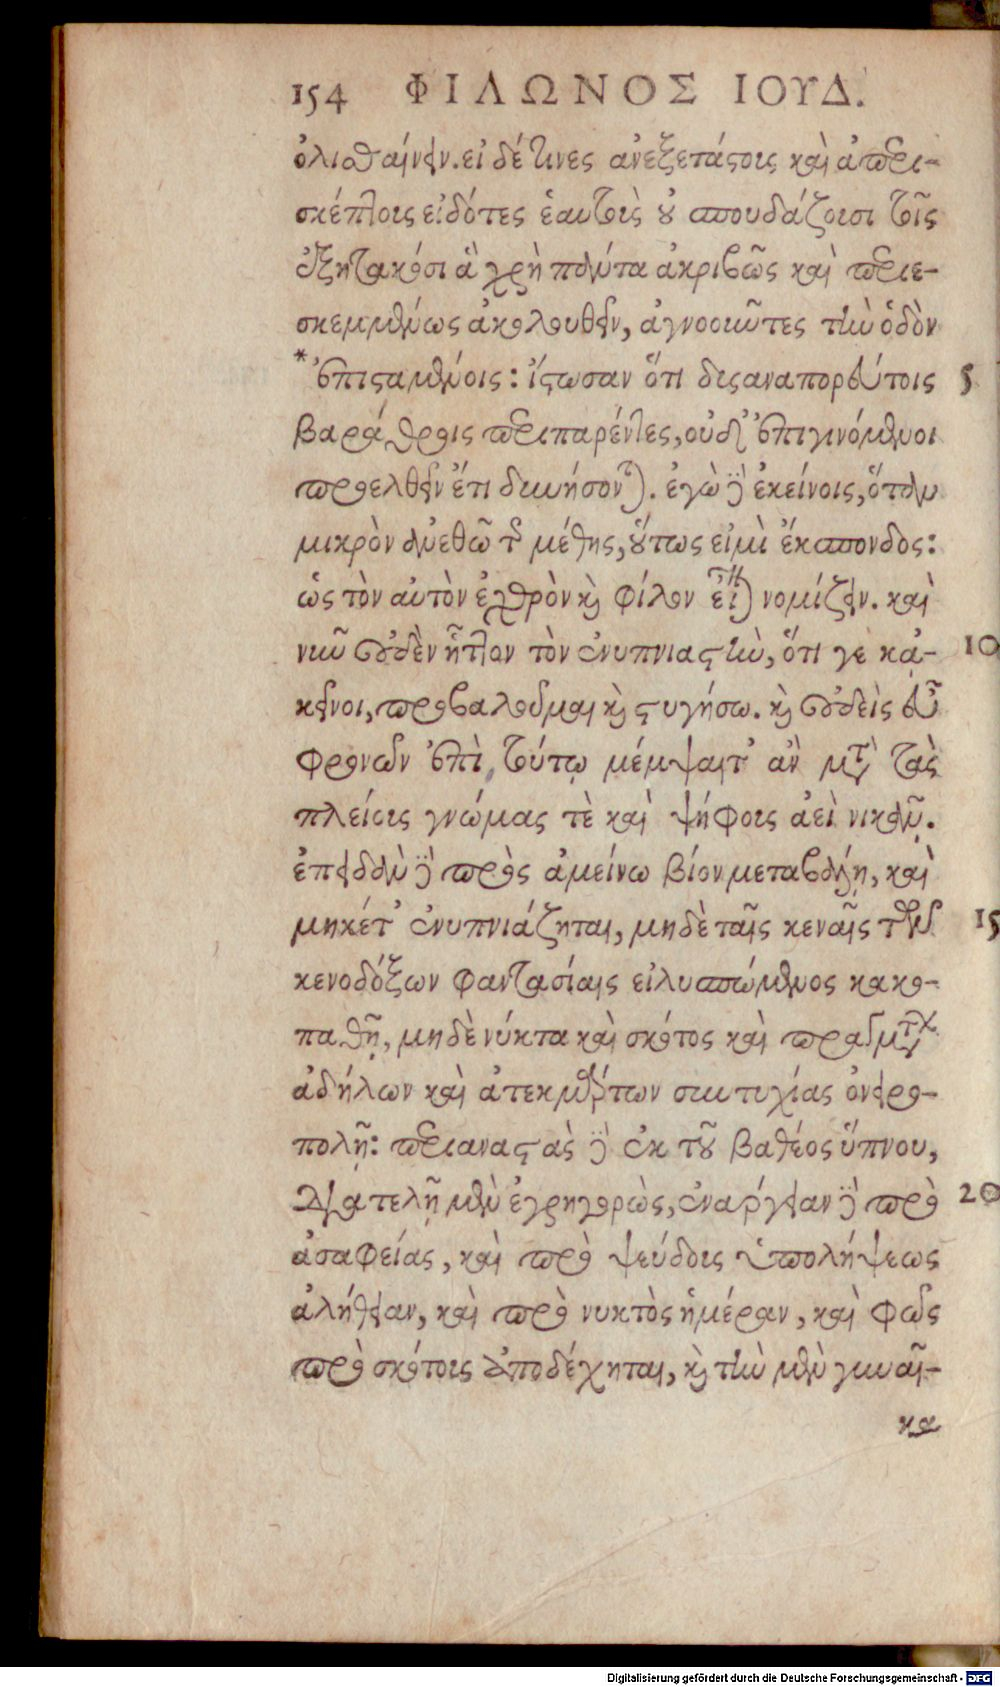 154 ΦΙΛΩΝΟΣ ΙΟΥΔ.
ὀλισθαίνειν. εἰ δέ τινες ἀνεξετάστους καὶ ἀπερι-
σκέπτους εἰδότες ἑαυτοὺς οὐ σπουδάζουσι τοῖς
ἐξητακόσι ἃ χρὴ πάντα ἀκριβῶς καὶ περιε-
σκεμμένως ἀκολουθεῖν, ἀγνοοῦντες τὴν ὁδὸν
*ἐπισταμένοις: ἴστωσαν ὅτι δυσαναπορεύτοις 5
βαράθροις περιπαρέντες, οὐδ' ἐπιγινόμενοι
προελθεῖν ἔτι δυνήσονται. ἐγὼ δὲ ἐκείνοις, ὅταν
μικρὸν ἀνεθῶ τῆς μέθης, οὕτως εἰμὶ ἔκσπονδος:
ὡς τὸν αὐτὸν ἐχθρὸν καὶ φίλον εἶναι νομίζειν. καὶ
νῦν οὐδὲν ἧττον τὸν ἐνυπνιαστὴν, ὅτι γε κἀ- 10
κεῖνοι, προβαλοῦμαι καὶ στυγήσω. καὶ οὐδεὶς εὖ
φρονῶν ἐπὶ τούτῳ μέμψαιτ' ἂν μετὰ τὰς
πλείους γνώμας τὲ καὶ ψήφους ἀεὶ νικᾷν.
ἐπειδὰν δὲ πρὸς ἀμείνω βίον μεταβάλῃ, καὶ
μηκέτ' ἐνυπνιάζηται, μηδὲ ταῖς κεναῖς τῶν 15
κενοδόξων φαντασίαις εἰλυσπώμενος κακο-
παθῇ, μηδὲ νύκτα καὶ σκότος καὶ πραγμάτων
ἀδήλων καὶ ἀτεκμάρτων συντυχίας ὀνειρο-
πολῇ: περιαναστὰς δὲ ἐκ τοῦ βαθέος ὕπνου,
διατελῇ μὲν ἐγρηγορὼς, ἐνάργειαν δὲ πρὸ 20
ἀσαφείας, καὶ πρὸ ψεύδους ὑπολήψεως
ἀλήθειαν, καὶ πρὸ νυκτὸς ἡμέραν, καὶ φῶς
πρὸ σκότους ἀποδέχηται, καὶ τὴν μὲν γυναῖ-
κα
Digitalisierung gefördert durch die Deutsche Forschungsgemeinschaft - DFG